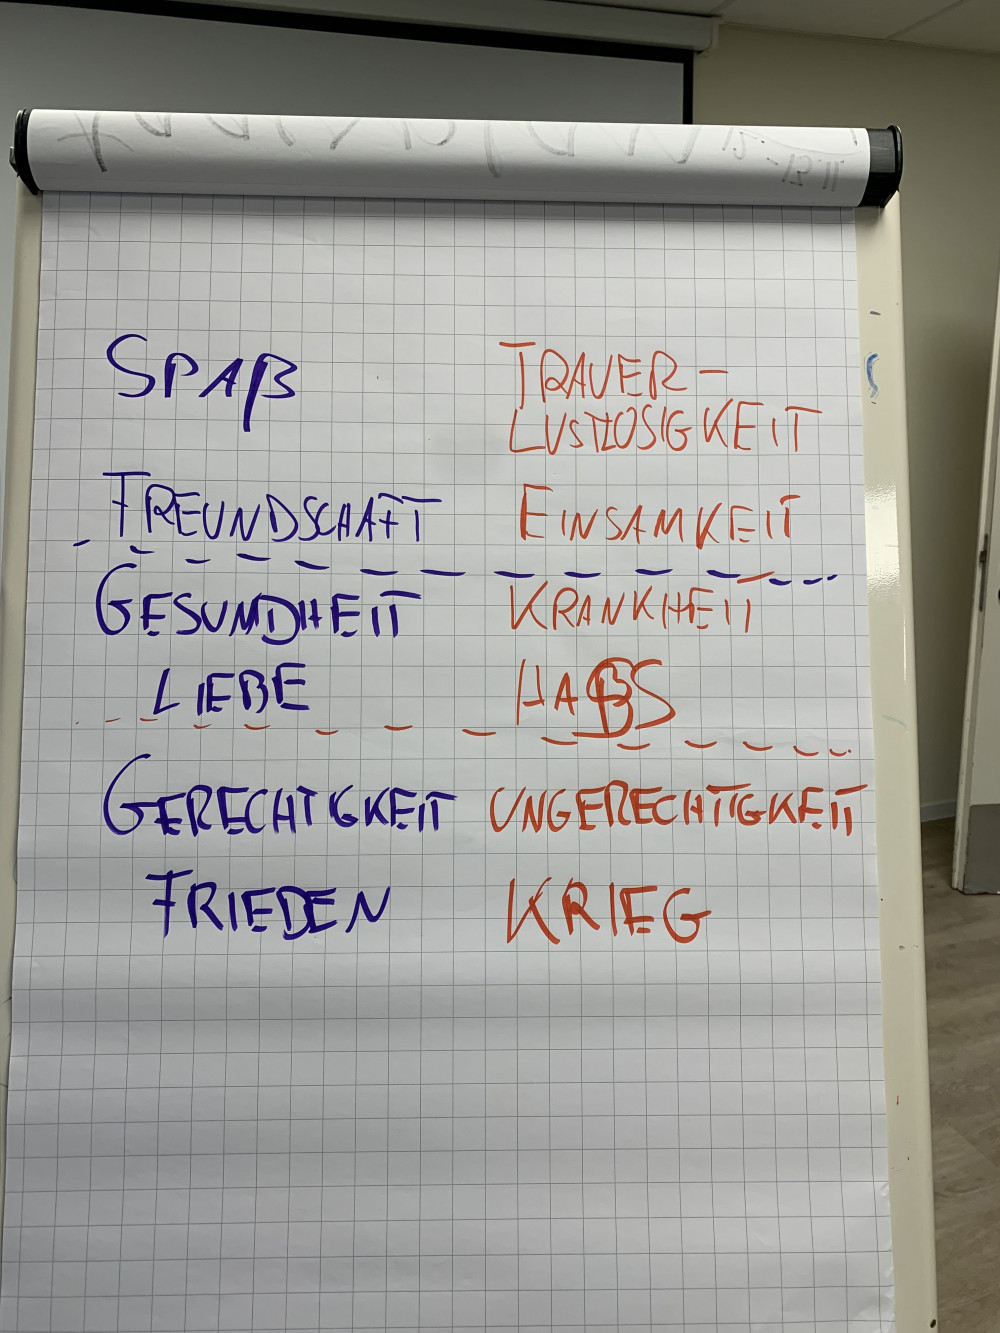 SPAß TRAUER-
LUSTLOSIGKEIT
FREUNDSCHAFT EINSAMKEIT
GESUNDHEIT KRANKHEIT
LIEBE HASS
GERECHTIGKEIT UNGERECHTIGKEIT
FRIEDEN KRIEG